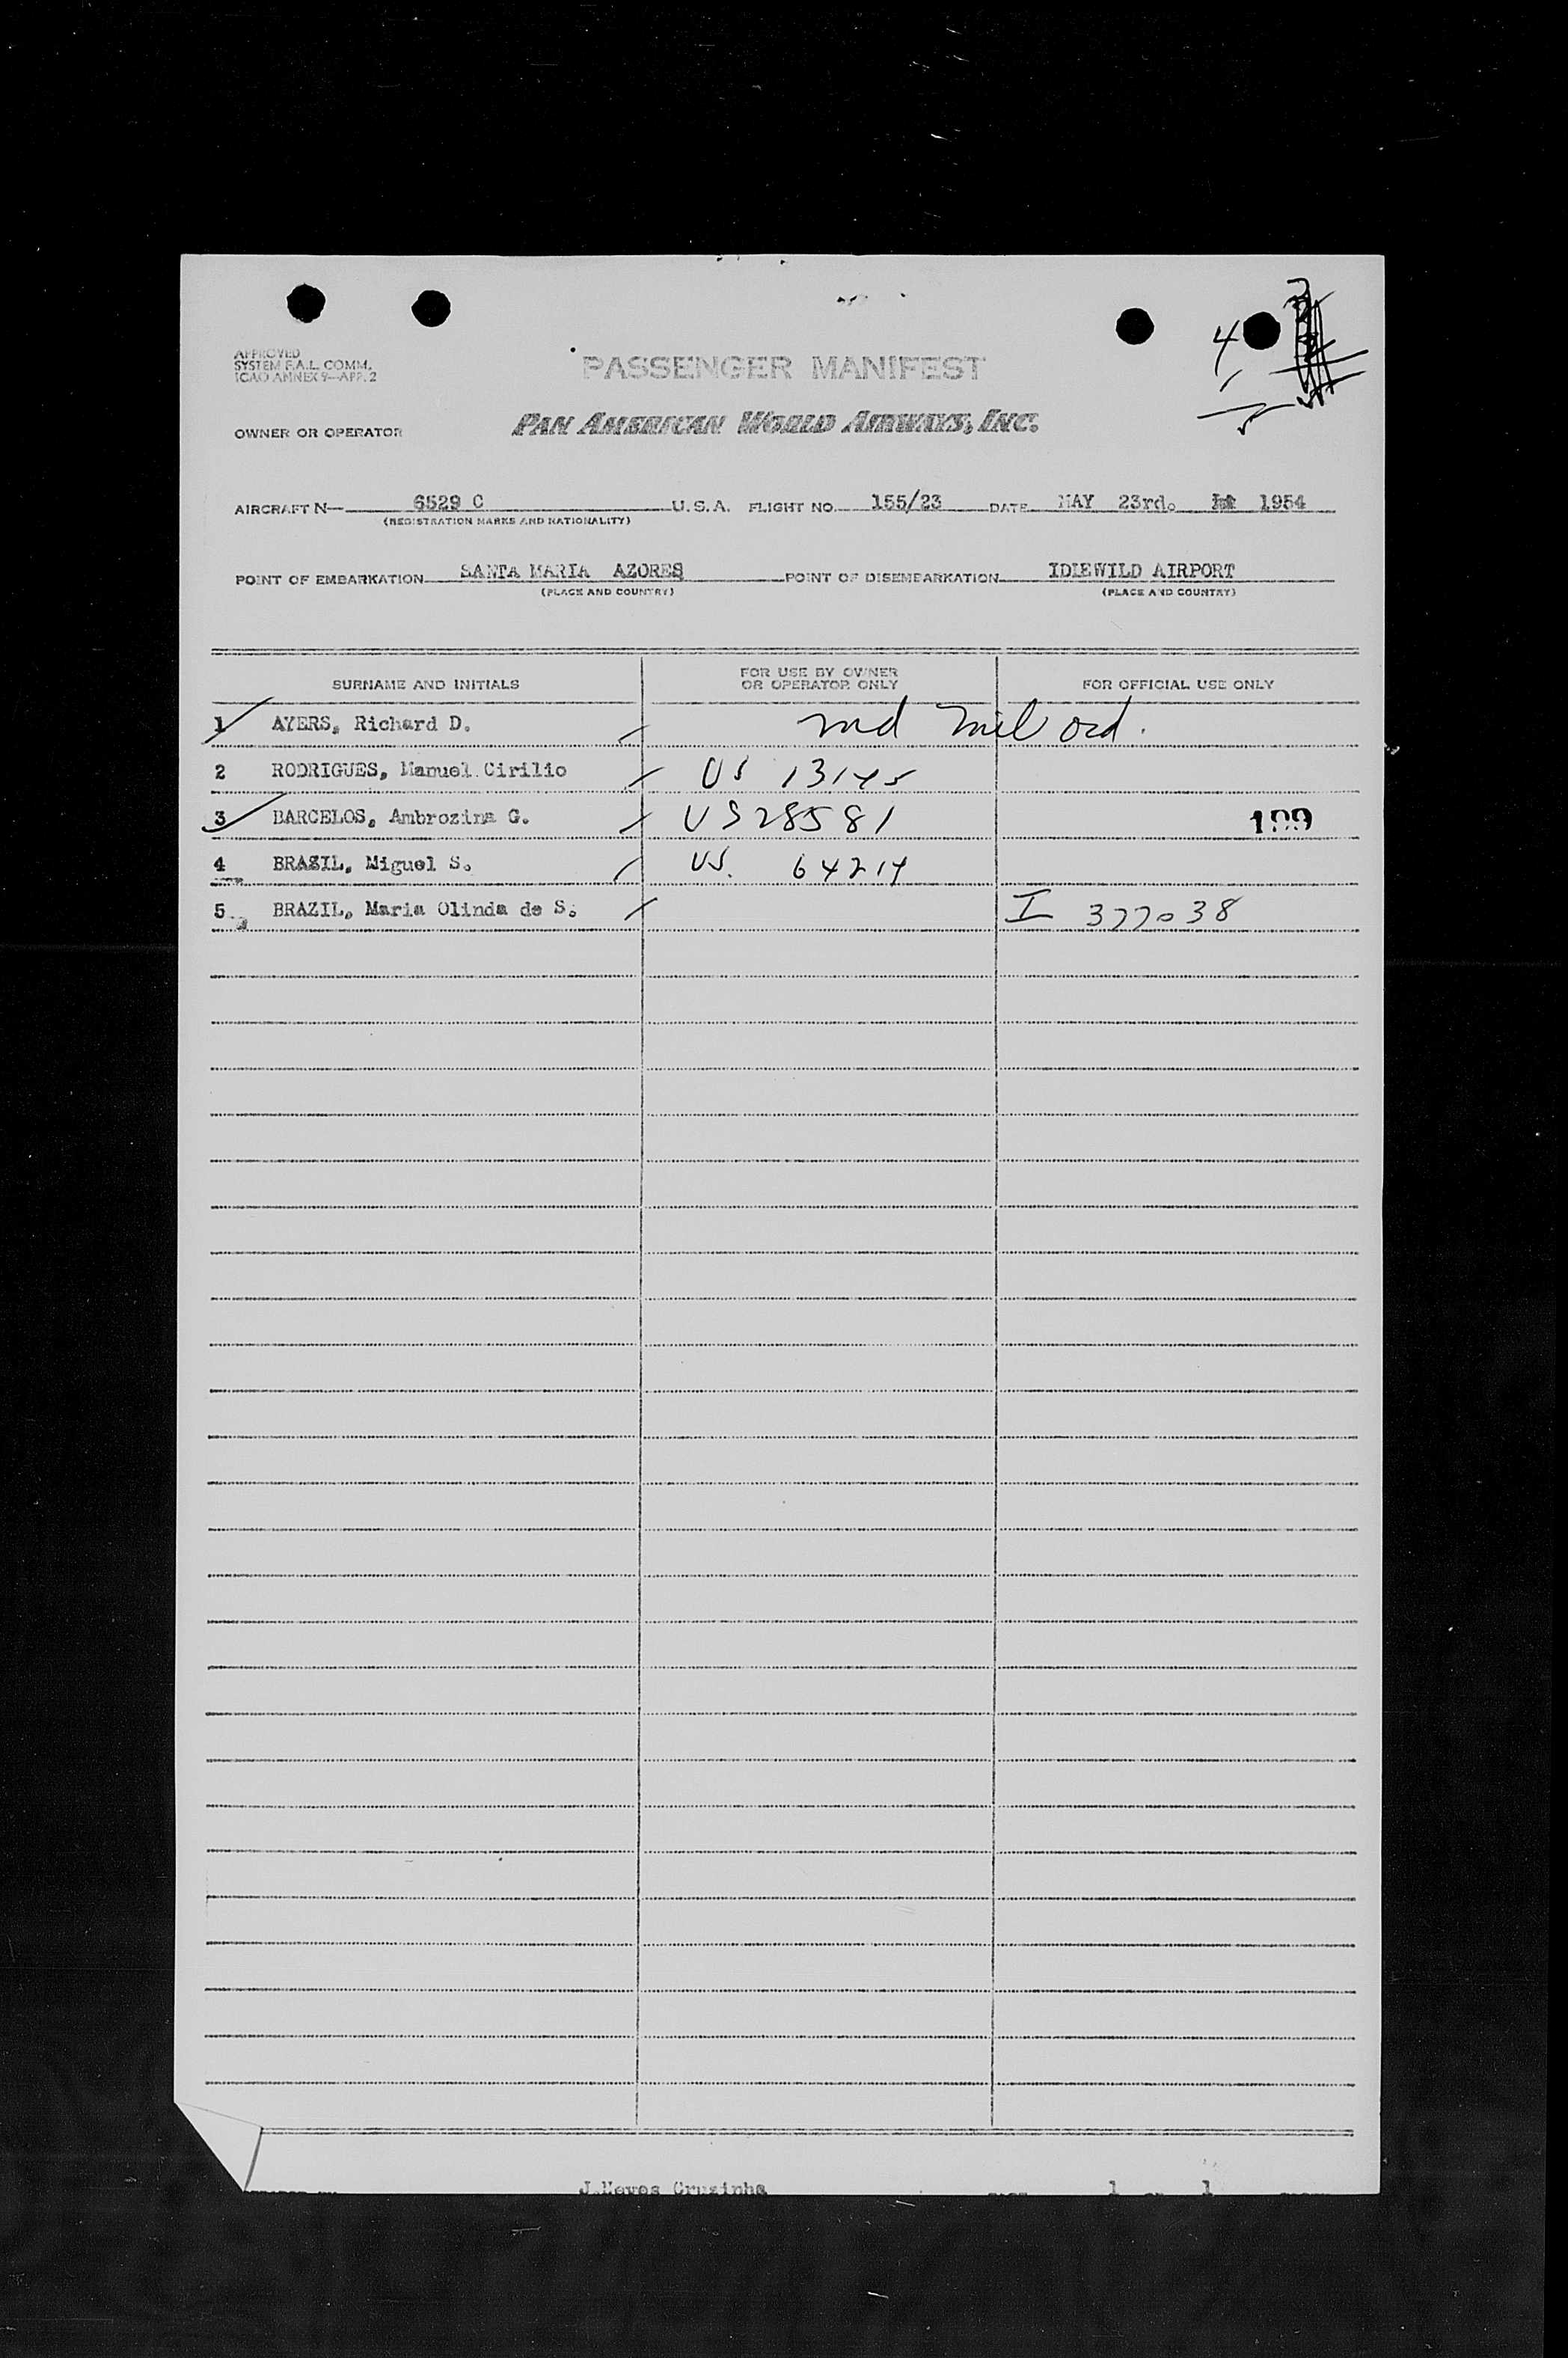 APPROVED
SYSTEM F.A.L. COMM.
ICAO ANNEX 9—APP. 2
4
1
5
PASSENGER MANIFEST
OWNER OR OPERATOR PAN AMERICAN WORLD AIRWAYS, INC.
AIRCRAFT N— 6529 C U. S. A. FLIGHT NO. 155/23 DATE MAY 23rd. 1954
(REGISTRATION MARKS AND NATIONALITY)
POINT OF EMBARKATION SANTA MARIA AZORES POINT OF DISEMBARKATION IDIEWILD AIRPORT
(PLACE AND COUNTRY) (PLACE AND COUNTRY)
SURNAME AND INITIALS FOR USE BY OWNER OR OPERATOR ONLY FOR OFFICIAL USE ONLY
1 AYERS, Richard D. mil ord.
2 RODRIGUES, Manuel Cirilio US 13145
3 BARCELOS, Ambrozina G. US 28581
4 BRAZIL, Miguel S. US. 64214
5 BRAZIL, Maria Olinda de S. I 377038
J. Neves Cruzinha 1 1